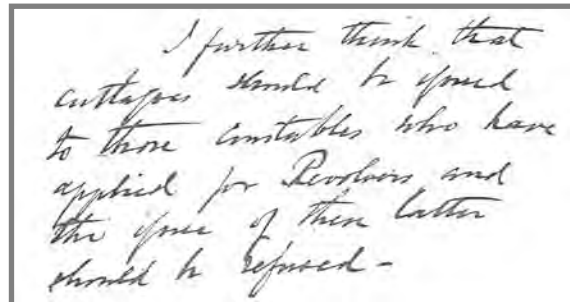 I further think that
cutlasses should be issued
to those Constables who have
applied for Revolvers and
the issue of these latter
should be refused -